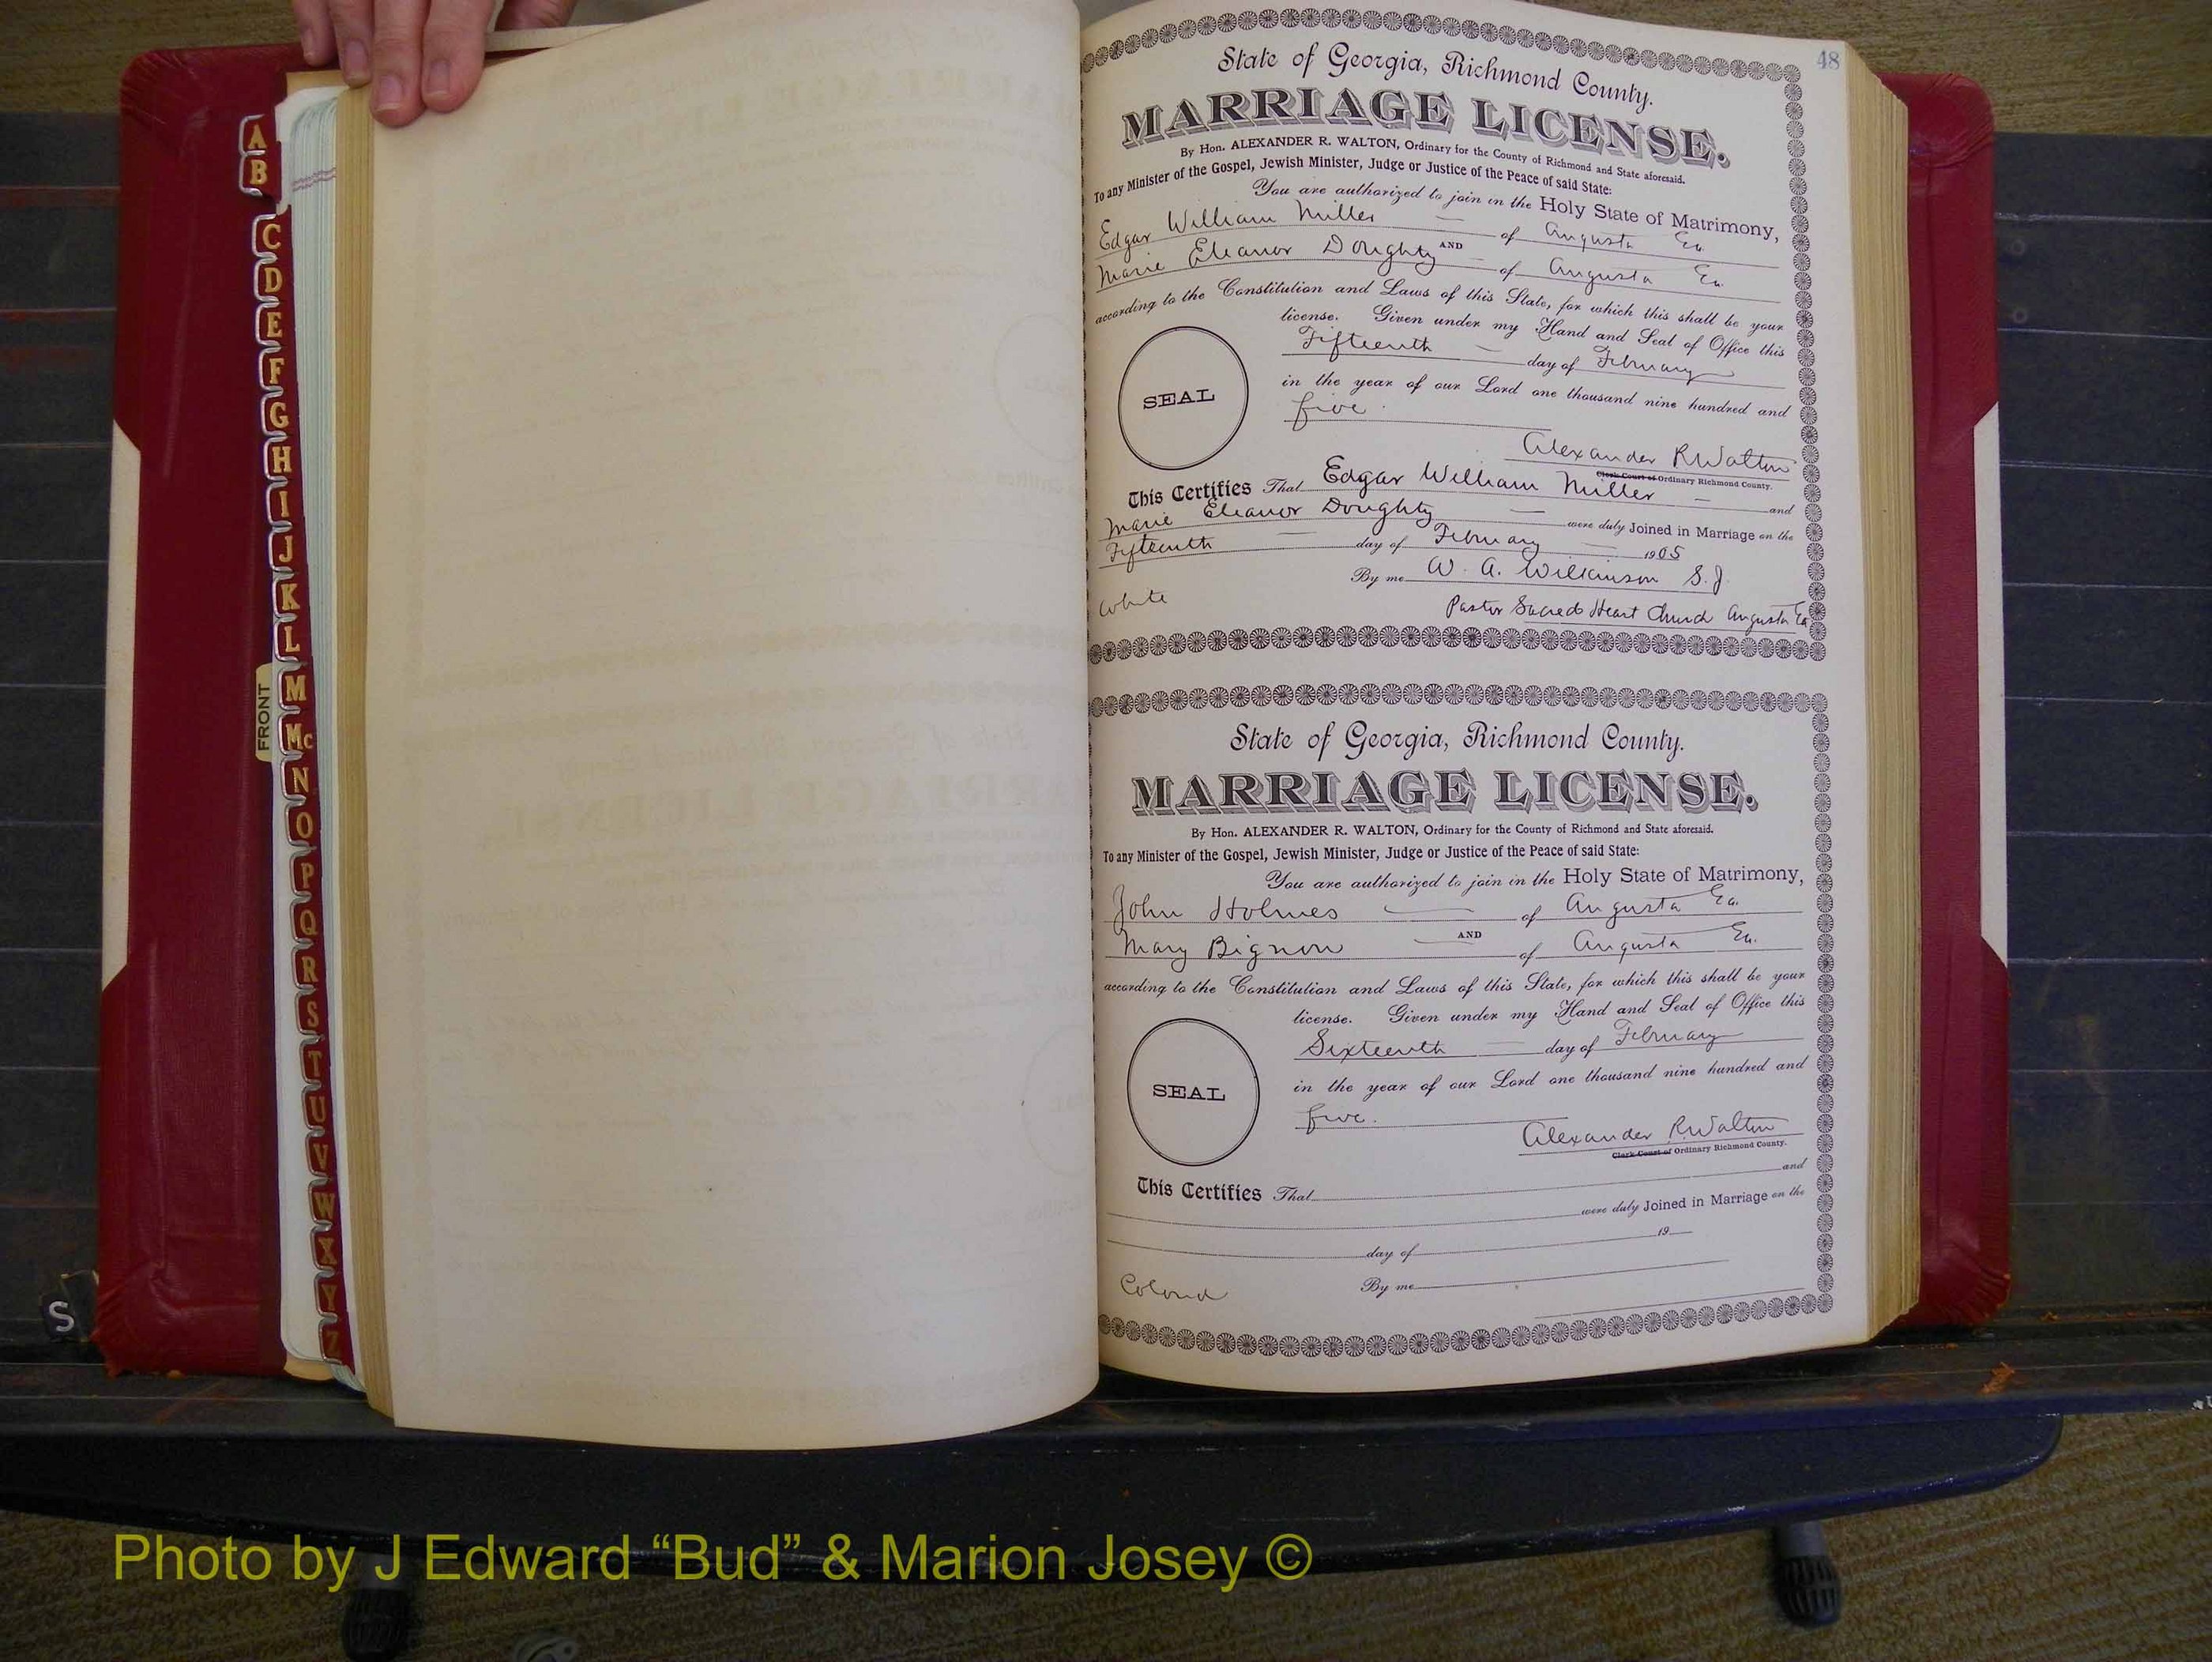 A
B
C
D
E
F
G
H
I
J
K
L
M
Mc
N
O
P
Q
R
S
T
U
V
W
X
Y
Z
FRONT
S
48
State of Georgia, Richmond County.
MARRIAGE LICENSE.
By Hon. ALEXANDER R. WALTON, Ordinary for the County of Richmond and State aforesaid.
To any Minister of the Gospel, Jewish Minister, Judge or Justice of the Peace of said State:
You are authorized to join in the Holy State of Matrimony,
Edgar William Miller — of Augusta Ga.
AND
Marie Eleanor Doughty — of Augusta Ga.
according to the Constitution and Laws of this State, for which this shall be your
license. Given under my Hand and Seal of Office this
Fifteenth — day of February
in the year of our Lord one thousand nine hundred and
five.
SEAL
Alexander R Walton
Clerk Court of Ordinary Richmond County.
This Certifies That Edgar William Miller — and
Marie Eleanor Doughty — were duly Joined in Marriage on the
Fifteenth — day of February — 1905
By me W. A. Wilkinson S.J.
White
Pastor Sacred Heart Church Augusta Ga
State of Georgia, Richmond County.
MARRIAGE LICENSE.
By Hon. ALEXANDER R. WALTON, Ordinary for the County of Richmond and State aforesaid.
To any Minister of the Gospel, Jewish Minister, Judge or Justice of the Peace of said State:
You are authorized to join in the Holy State of Matrimony,
John Holmes — of Augusta Ga.
AND
Mary Bignon — of Augusta Ga.
according to the Constitution and Laws of this State, for which this shall be your
license. Given under my Hand and Seal of Office this
Sixteenth — day of February
in the year of our Lord one thousand nine hundred and
five.
SEAL
Alexander R. Walton
Clerk Court of Ordinary Richmond County.
This Certifies That and
were duly Joined in Marriage on the
day of 19
By me
Colored
Photo by J Edward “Bud” & Marion Josey ©